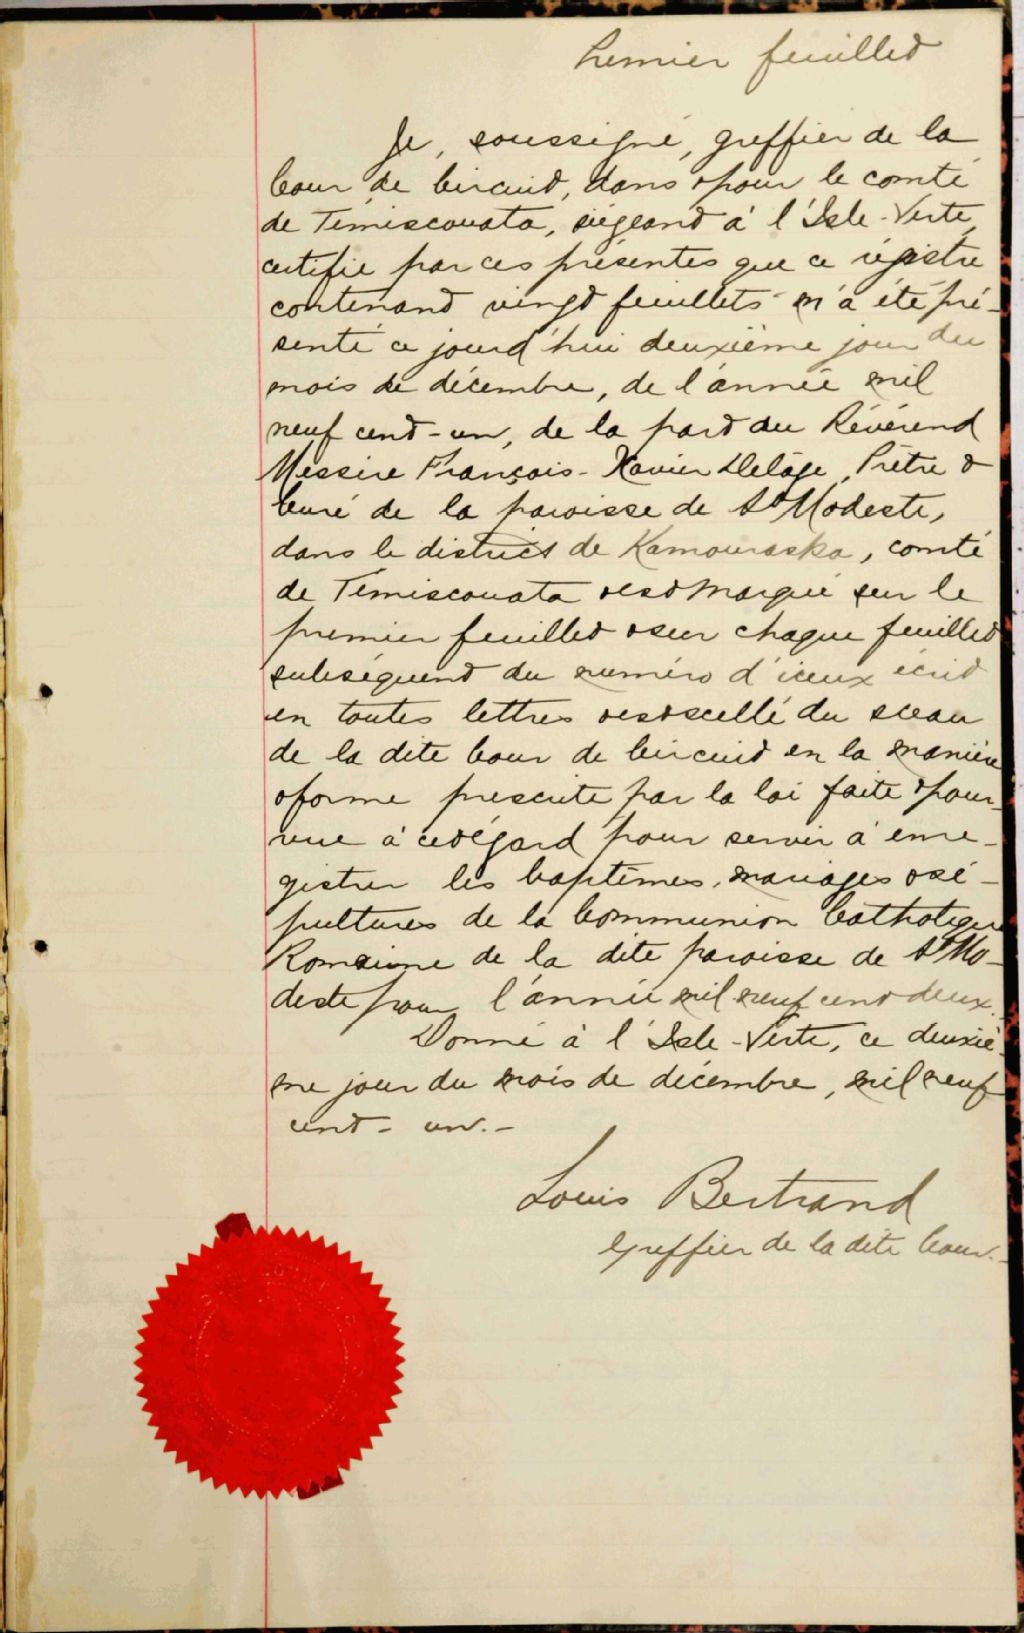 Premier feuillet
Je, soussigné, greffier de la
Cour de Circuit, dans & pour le comté
de Témiscouata, siégeant à l'Isle-Verte,
certifie par ces présentes que ce régistre
contenant vingt feuillets m'a été pré-
senté ce jourd'hui deuxième jour du
mois de décembre, de l'année mil
neuf cent-un, de la part du Révérend
Messire François-Xavier Delâge, Prêtre &
Curé de la paroisse de St Modeste,
dans le district de Kamouraska, comté
de Témiscouata & est marqué sur le
premier feuillet & sur chaque feuillet
subséquent du numéro d'iceux écrit
en toutes lettres & est scellé du sceau
de la dite Cour de Circuit en la manière
& forme prescrite par la loi faite & pour-
vue à cet égard pour servir à enre-
gistrer les baptêmes, mariages & sé-
pultures de la Communion Catholique
Romaine de la dite paroisse de St Mo-
deste pour l'année mil neuf cent deux.
Donné à l'Isle-Verte, ce deuxiè-
me jour du mois de décembre, mil neuf
cent-un.-
Louis Bertrand
Greffier de la dite Cour.-